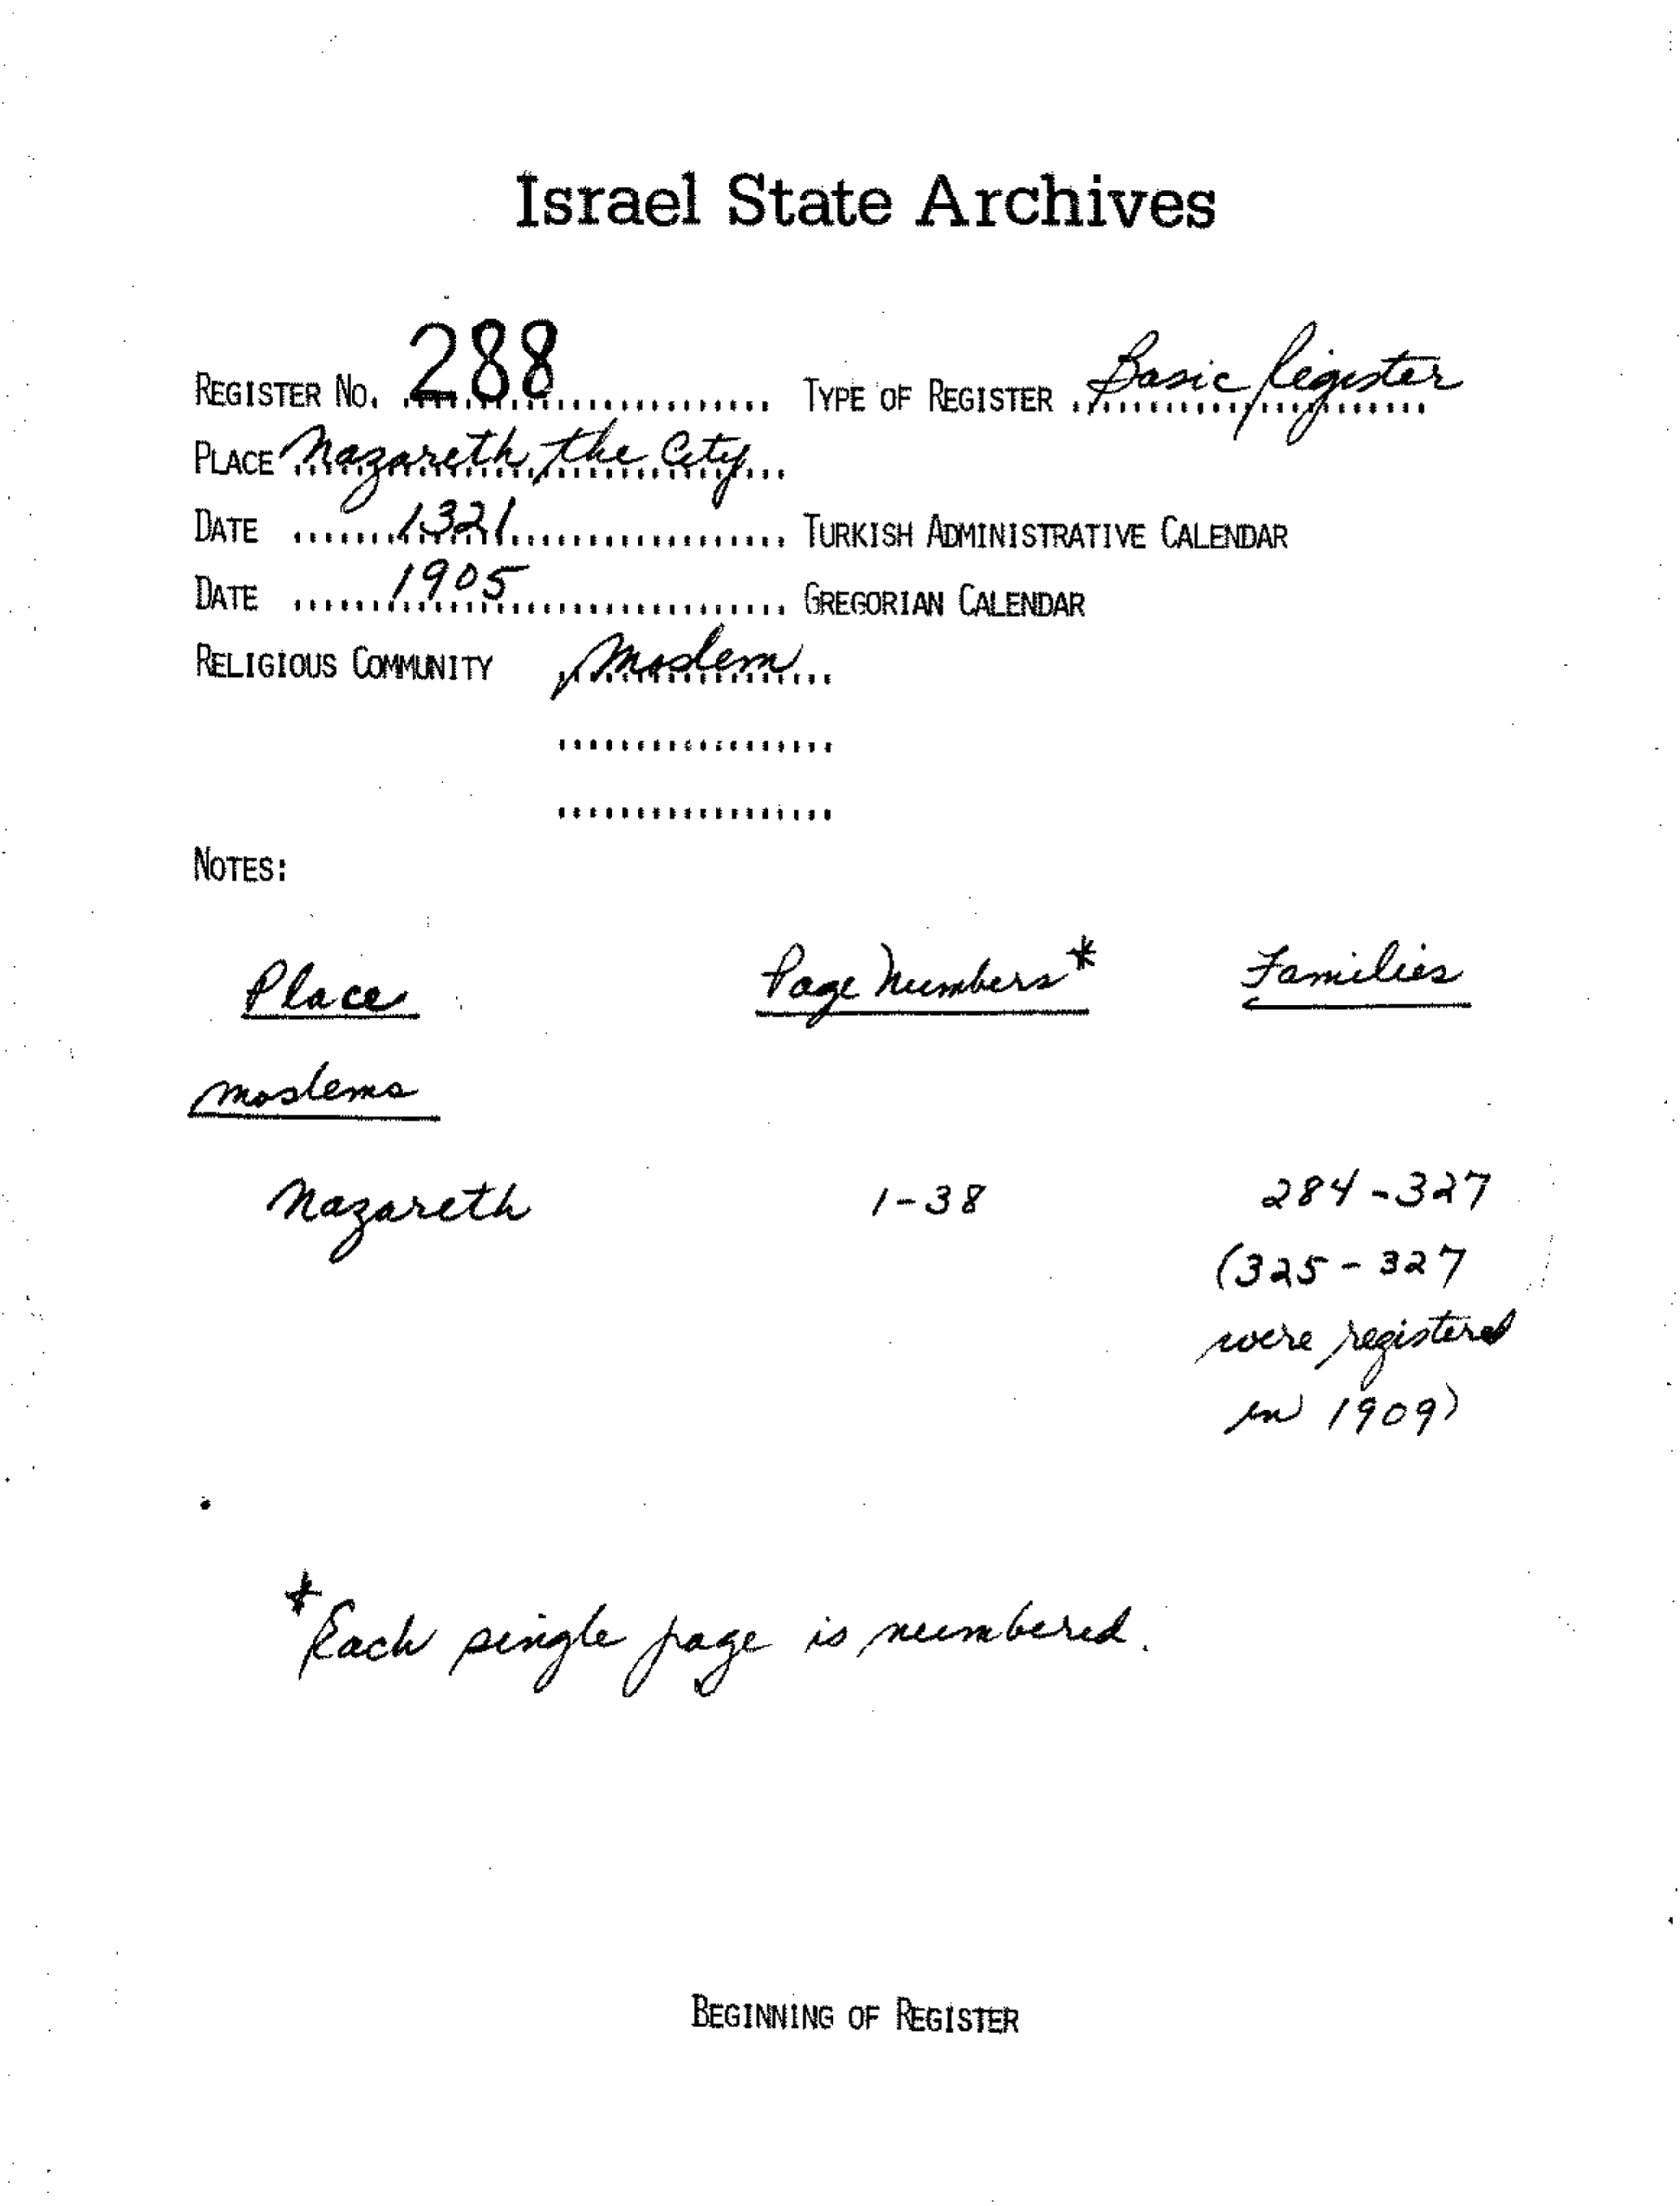 Israel State Archives
REGISTER NO. 288 TYPE OF REGISTER Basic Register
PLACE Nazareth, the City
DATE 1321 TURKISH ADMINISTRATIVE CALENDAR
DATE 1905 GREGORIAN CALENDAR
RELIGIOUS COMMUNITY Moslem
NOTES:
Place Page Numbers* Families
Moslems
Nazareth 1-38 284-327
(325-327
were registered
in 1909)
*Each single page is numbered.
BEGINNING OF REGISTER